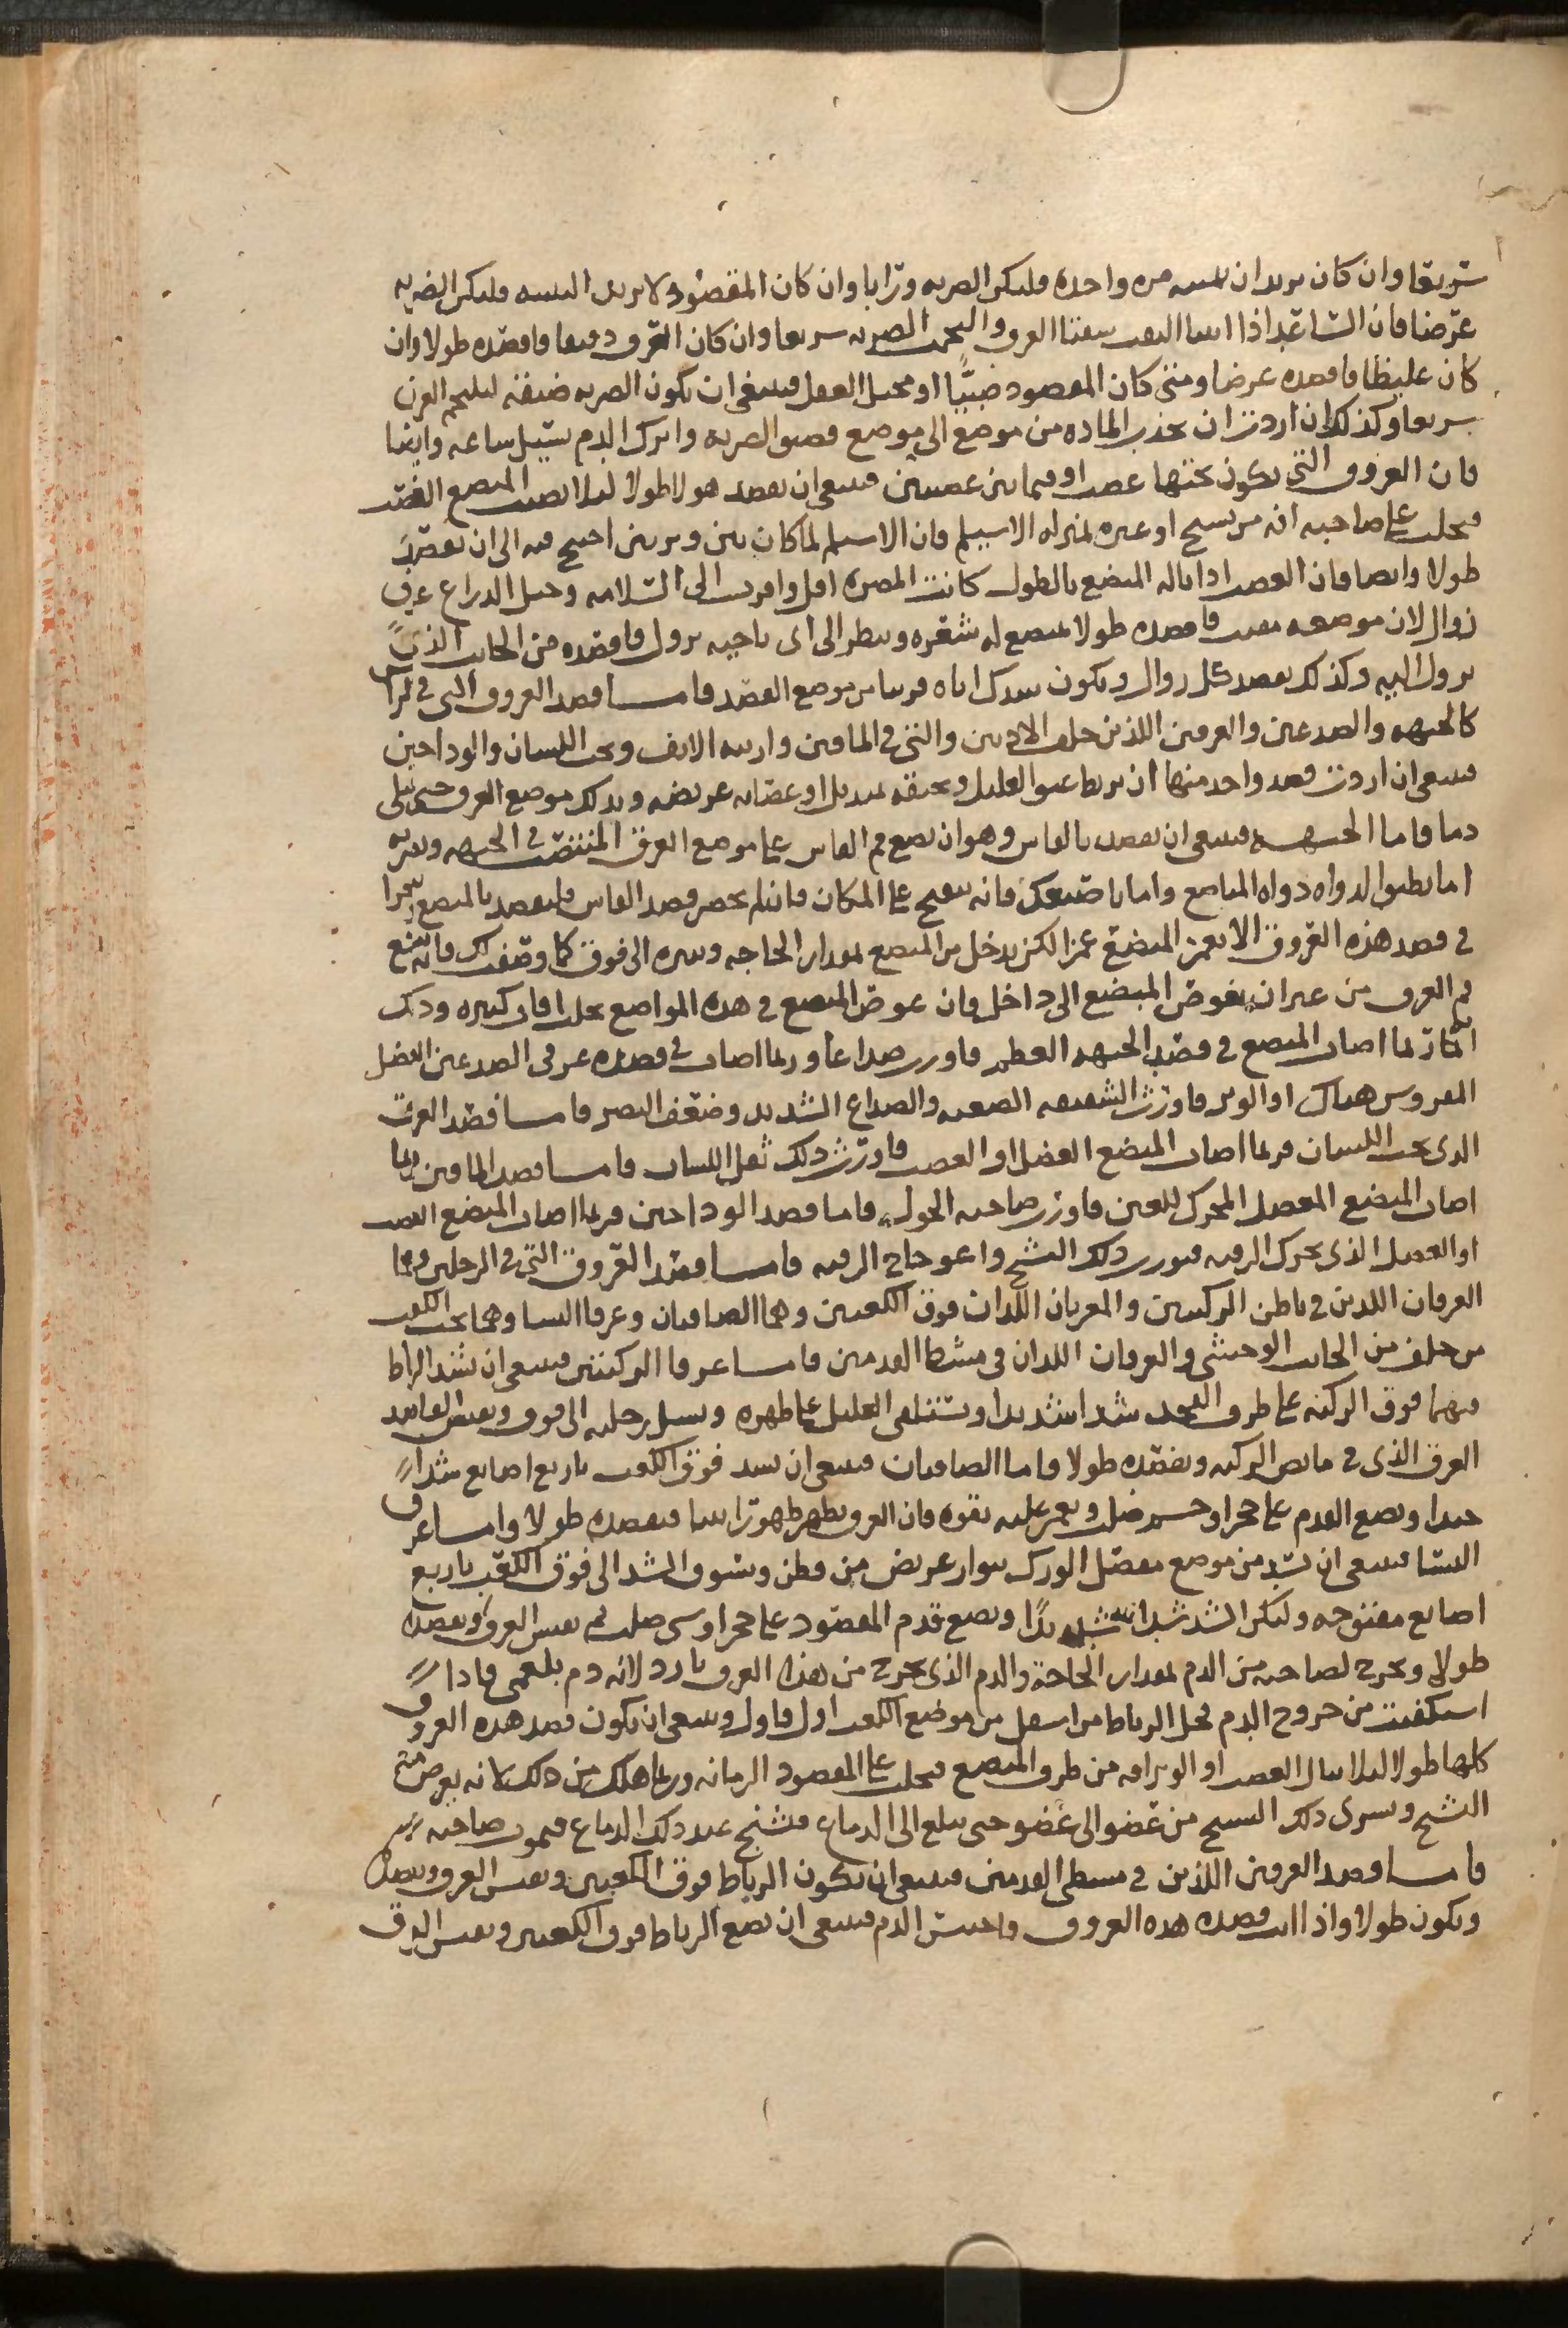 سريعا وان كان يريد ان يثنيه مره واحده فليكن الضربه ورابا وان كان المفصود لا يريد التثنيه فليكن الضربه
عرضا فان الساعد اذا انثنا التقت شفتا العرق والتحمت الضربه سريعا وان كان العرق دقيقا فافصده طولا وان
كان غليظا فافصده عرضا ومتى كان المفصود صبيًّا او مختل العقل فينبغي ان تكون الضربه ضيقه ليلتحم العرق
سريعا وكذلك ان اردت ان تجذب الماده من موضع الى موضع فضيق الضربه واترك الدم يسيل ساعه وايضا
فان العروق التي تكون تحتها عصب او فيما بين عصبين فينبغي ان تفصد هولا طولا ليلا تصيب المبضع العصب
فيجلب على صاحبه افه من تشنج او غيره بمنزله الاسيلم فان الاسيلم لما كان بين وترين احتيج فيه الى ان تفصد
طولا وايضا فان العصب اذا ناله المبضع بالطول كانت المضره اقل واقرب الى السلامه وحبل الدراع عرق
زوال لان موضعه معيب فافصده طولا بمبضع له شعره وينظر الى اى ناحيه يزول فافصده من الجانب الذى
يزول اليه وكذلك تفصد كل زوال ويكون شدك اياه قريبا من موضع الفصد فاما فصد العروق التى فى الراس
كالجبهه والصدغين والعرقين اللذين خلف الادنين والتي في الماقين وارنبه الانف وتحت اللسان والوداجين
فينبغي ان اردت فصد واحد منها ان تربط عنق العليل وتخنقه بمنديل او عصابه عريضه ويدلك موضع العرق حتى يمتلى
دما فاما الجبهه فينبغي ان تفصد بالفاس وهو ان تضع فم الفاس على موضع العرق المنتصب في الجبهه وتضربه
اما بطبق الدواه دواه المباضع واما باصبعك فانه يفتح على المكان فان لم تحضر فصد الفاس فليفصد بالمبضع تتحرا
في فصد هذه العروق الا تغمز المبضع غمزا لكن يدخل من المبضع بمقدار الحاجه وتنثره الى فوق كما وصفت لك فانه يفتح
فم العرق من غير ان يغوص المبضع الى داخل فان غوص المبضع فى هذه المواضع يجلب افات كثيره ودلك
انه ربما اصاب المبضع في فصد الجبهه العظم فاورث صداعا وربما اصاب في فصده عرقى الصدغين العضل
المغروس هناك او الوتر فاورث الشقيقه الصعبه والصداع الشديد وضعف البصر فاما فصد العرق
الدى تحت اللسان فربما اصاب المبضع العضل او العصب فاورث دلك ثقل اللسان فاما فصد الماقين فربما
اصاب المبضع المعضل المحرك للعين فاورث صاحبه الحول فاما فصد الوداجين فربما اصاب المبضع العصب
او العضل الذى يحرك الرقبه فيورث دلك التشنج واعوجاج الرقبه فاما فصد العروق التي في الرجلين وهما
العرقان اللدين في باطن الركبتين والعرقان اللدان فوق الكعبين وهما الصافنان وعرقا النسا وهما تحت الكعب
من خلف من الجانب الوحشي والعرقان اللدان فى مشطا القدمين فاما عرقا الركبتين فينبغى ان تشد الرباط
فيهما فوق الركبه على طرف الفخد شدا شديدا ويستلقى العليل على ظهره ويسيل رجليه الى فوق ويفتش الفاصد
العرق الذى فى مابض الركبه ويفصده طولا فاما الصافنان فينبغى ان تشد فوق الكعب باربع اصابع شدا
جيدا ويضع القدم على حجر او جسم صلب ويغمز عليه بقوه فان العرق يظهر ظهورا بينا فيفصده طولا واما عرق
النسا فينبغى ان تشد من موضع مفصل الورك بنوار عريض من قطن وتسوق الشد الى فوق الكعب باربع
اصابع مفتوحه وليكن الشد شدا شديدًا ويضع قدم المفصود على حجر او شى صلب ثم يفتش العرق ويفصده
طولا ويخرج لصاحبه من الدم بمقدار الحاجة والدم الذى يخرج من هذا العرق بارد لانه دم بلغمى فاذا
استكفيت من خروج الدم فحل الرباط من اسفل من موضع الكعب اول فاول وينبغى ان يكون فصد هذه العروق
كلها طولا ليلا ينال العصب او الوتر افه من طرف المبضع فيجلب على المفصود الزمانه وربما هلك من دلك لانه يعرض منه
التشنج ويسرى دلك التشنج من عضو الى عضو حتى يبلغ الى الدماغ فيتشنج عند دلك الدماغ فيموت صاحبه
فاما فصد العرقين اللذين في مشطى القدمين فينبغى ان يكون الرباط فوق الكعبين ويفتش العرق ويفصد
ويكون طولا واذا انت فصدت هده العروق واحتبس الدم فينبغى ان تضع الرباط فوق الكعبين ويفتش العرق